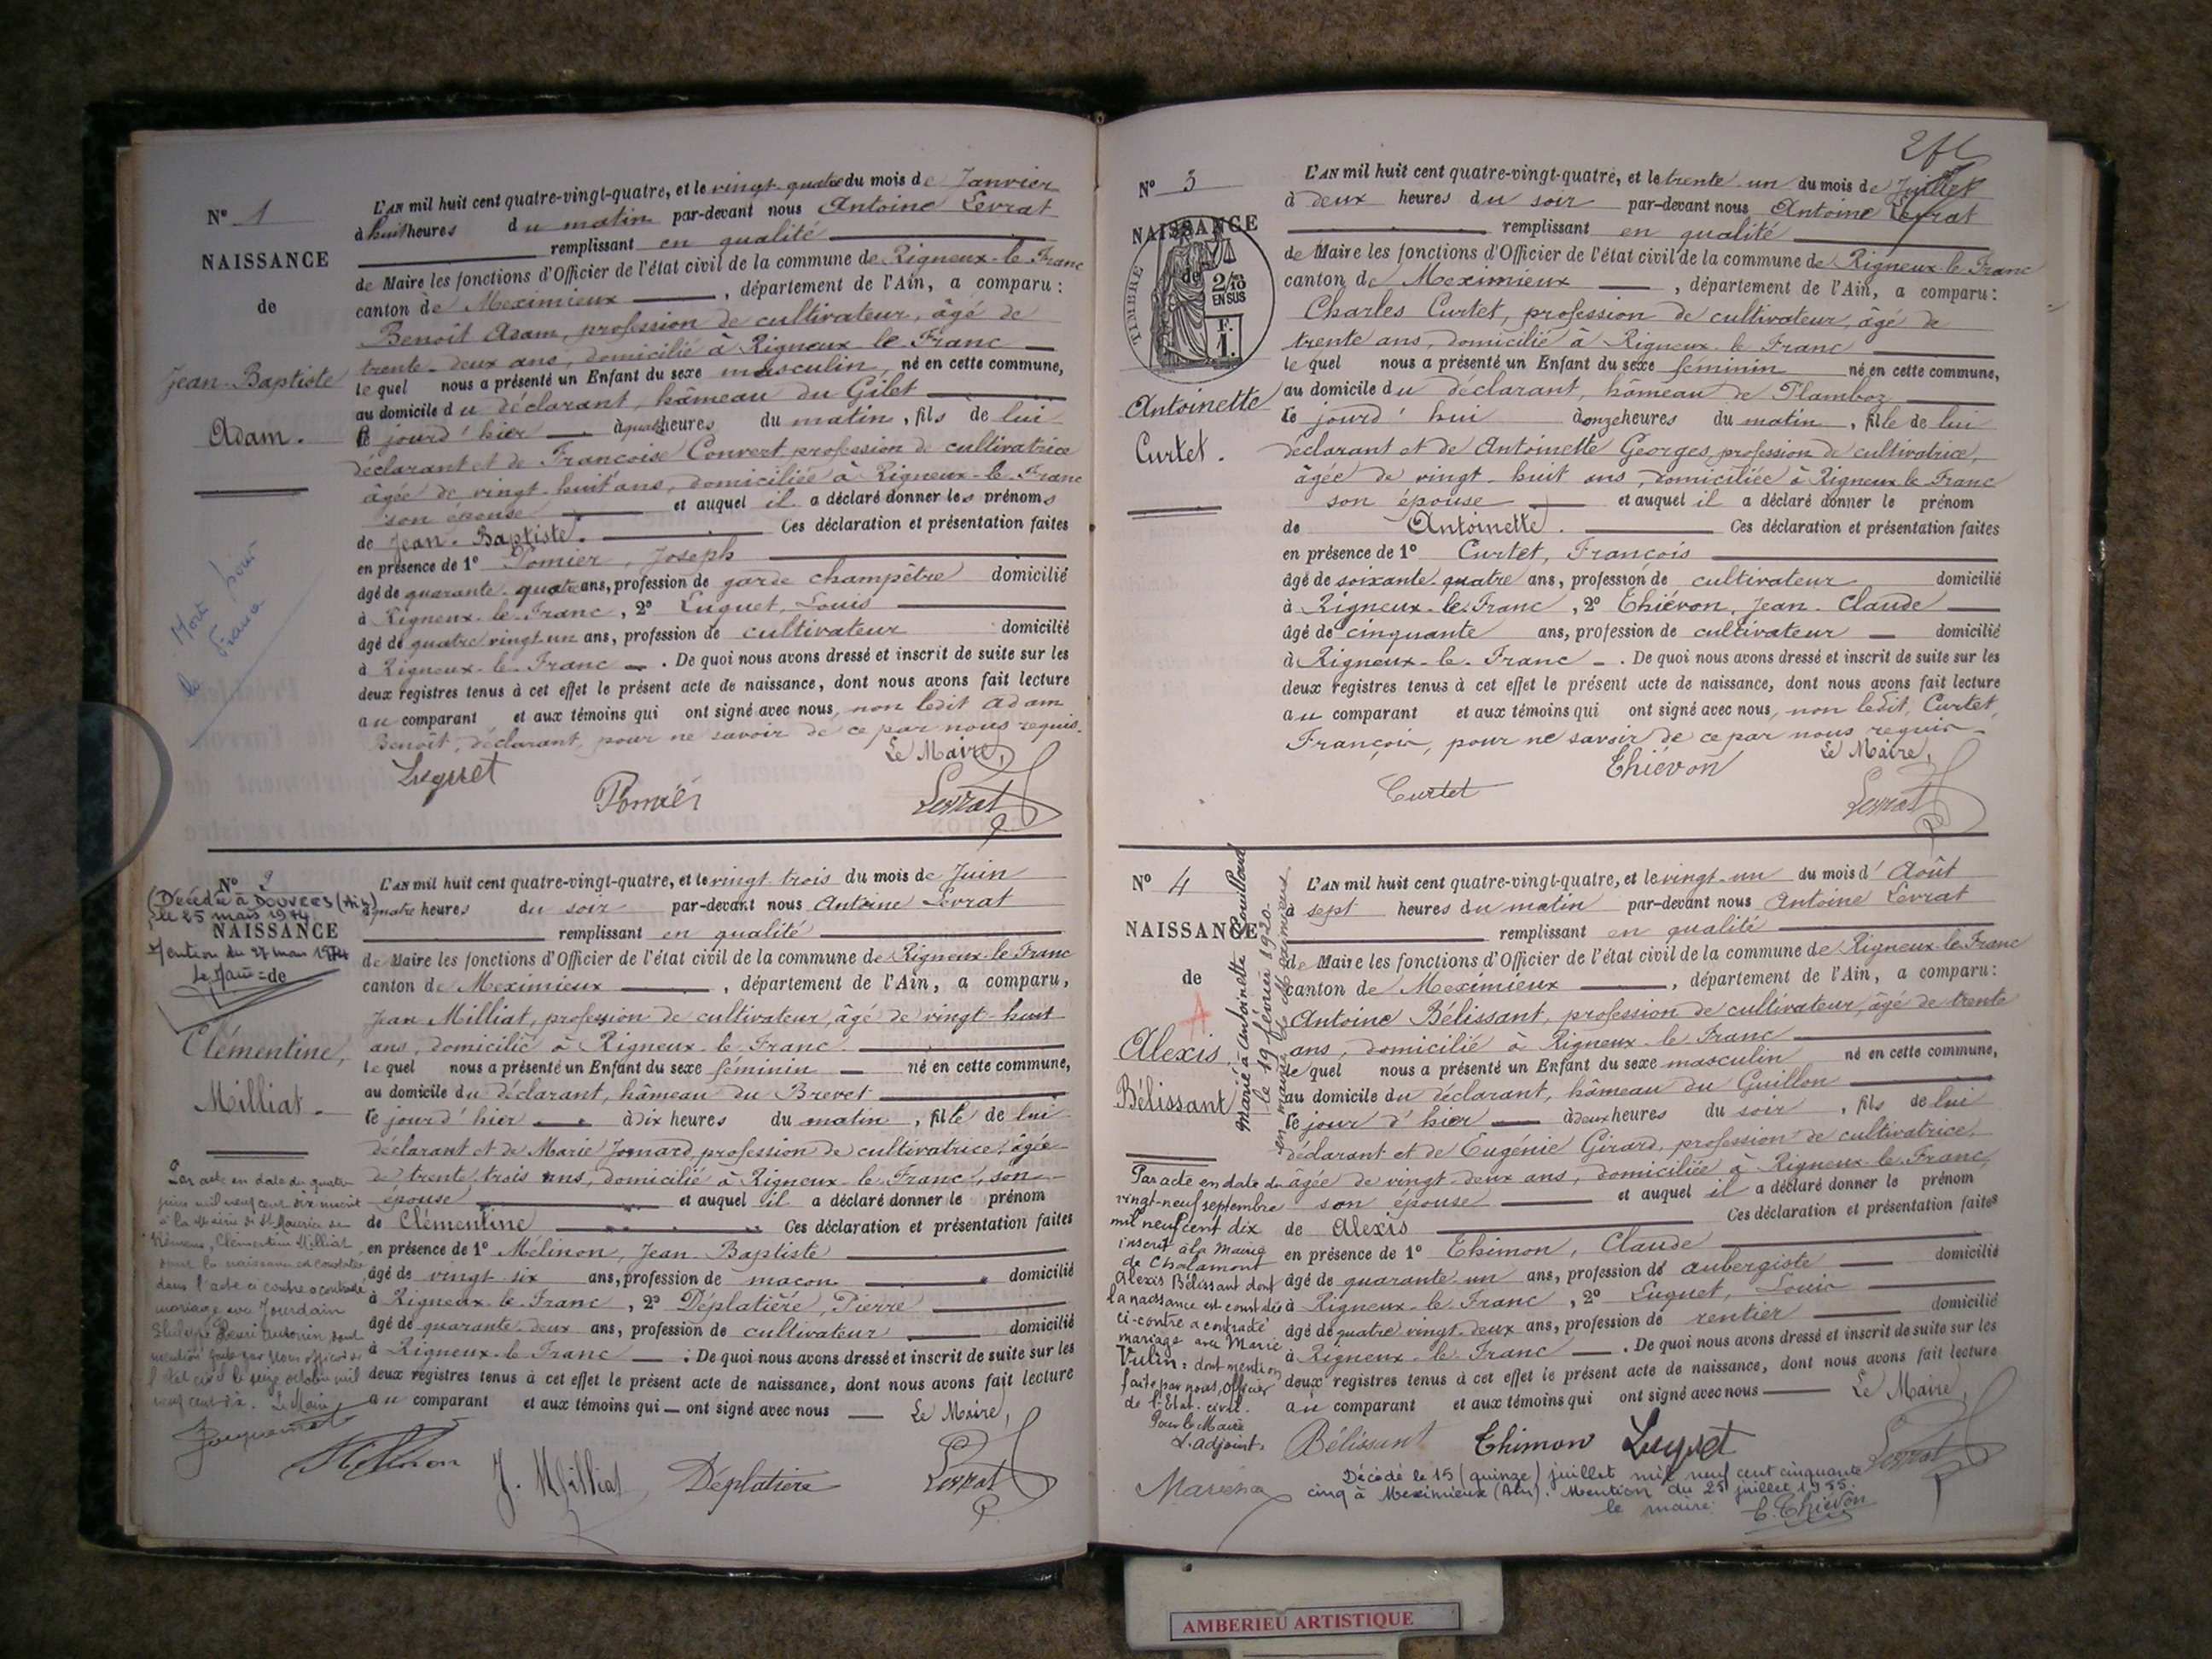 N° 1
NAISSANCE
de
Jean-Baptiste
Adam.
Mort pour
la France
L'AN mil huit cent quatre-vingt-quatre, et le vingt-quatre du mois de Janvier
à huit heures du matin par-devant nous Antoine Levrat
remplissant en qualité
de Maire les fonctions d'Officier de l'état civil de la commune de Rigneux-le-Franc
canton de Meximieux, département de l'Ain, a comparu:
Benoît Adam, profession de cultivateur, âgé de
trente-deux ans, domicilié à Rigneux-le-Franc
lequel nous a présenté un Enfant du sexe masculin, né en cette commune,
au domicile du déclarant, hâmeau du Gilet
le jourd'hier à quatre heures du matin, fils de lui
déclarant et de Françoise Convert profession de cultivatrice
âgée de vingt-huit ans, domiciliée à Rigneux-le-Franc
son épouse et auquel il a déclaré donner les prénoms
de Jean-Baptiste. Ces déclaration et présentation faites
en présence de 1° Pomier, Joseph
âgé de quarante-quatre ans, profession de garde champêtre domicilié
à Rigneux-le-Franc, 2° Luguet, Louis
âgé de quatre vingt-un ans, profession de cultivateur domicilié
à Rigneux-le-Franc. De quoi nous avons dressé et inscrit de suite sur les
deux registres tenus à cet effet le présent acte de naissance, dont nous avons fait lecture
au comparant et aux témoins qui ont signé avec nous, non ledit Adam
Benoît, déclarant, pour ne savoir de ce par nous requis.
Le Maire,
Luguet Pomier Levrat
N° 2
(Décédée à DOUVRES (Ain)
le 25 mars 1974
NAISSANCE
Mention du 27 mars 1974
Le Maire
de
Clémentine,
Milliat.
Par acte en date du quatre
juin mil neuf cent dix inscrit
à la Mairie de St Maurice de
Rémens, Clémentine Milliat
dont la naissance est constatée
dans l'acte ci contre a contracté
mariage avec Jourdain
Henri Antonin dont
mention faite par Nous officier de
l'état civil le seize octobre mil
neuf cent dix. Le Maire,
L'AN mil huit cent quatre-vingt-quatre, et le vingt-trois du mois de Juin
à quatre heures du soir par-devant nous Antoine Levrat
remplissant en qualité
de Maire les fonctions d'Officier de l'état civil de la commune de Rigneux-le-Franc
canton de Meximieux, département de l'Ain, a comparu,
Jean Milliat, profession de cultivateur, âgé de vingt-huit
ans, domicilié à Rigneux-le-Franc.
lequel nous a présenté un Enfant du sexe féminin né en cette commune,
au domicile du déclarant, hâmeau du Brevet
le jourd'hier à dix heures du matin, fille de lui
déclarant et de Marie Jomard, profession de cultivatrice, âgée
de trente-trois ans, domicilié à Rigneux-le-Franc, son
épouse et auquel il a déclaré donner le prénom
de Clémentine Ces déclaration et présentation faites
en présence de 1° Mélinon, Jean-Baptiste
âgé de vingt-six ans, profession de maçon domicilié
à Rigneux-le-Franc, 2° Déplatière, Pierre
âgé de quarante-deux ans, profession de cultivateur domicilié
à Rigneux-le-Franc: De quoi nous avons dressé et inscrit de suite sur les
deux registres tenus à cet effet le présent acte de naissance, dont nous avons fait lecture
au comparant et aux témoins qui ont signé avec nous Le Maire,
Mélinon J. Milliat Déplatière Levrat
N° 3
NAISSANCE
de
TIMBRE
2/10
EN SUS
F.
1.
Antoinette
Curtet.
L'AN mil huit cent quatre-vingt-quatre, et le trente-un du mois de Juillet
à deux heures du soir par-devant nous Antoine Levrat
remplissant en qualité
de Maire les fonctions d'Officier de l'état civil de la commune de Rigneux-le-Franc
canton de Meximieux, département de l'Ain, a comparu:
Charles Curtet, profession de cultivateur, âgé de
trente ans, domicilié à Rigneux-le-Franc
lequel nous a présenté un Enfant du sexe féminin né en cette commune,
au domicile du déclarant, hâmeau de Flamboz
le jourd'hui à onze heures du matin, fille de lui
déclarant et de Antoinette Georges, profession de cultivatrice,
âgée de vingt-huit ans, domiciliée à Rigneux-le-Franc
son épouse et auquel il a déclaré donner le prénom
de Antoinette. Ces déclaration et présentation faites
en présence de 1° Curtet, François
âgé de soixante-quatre ans, profession de cultivateur domicilié
à Rigneux-le-Franc, 2° Thiévon, Jean-Claude
âgé de cinquante ans, profession de cultivateur domicilié
à Rigneux-le-Franc. De quoi nous avons dressé et inscrit de suite sur les
deux registres tenus à cet effet le présent acte de naissance, dont nous avons fait lecture
au comparant et aux témoins qui ont signé avec nous, non ledit, Curtet,
François, pour ne savoir de ce par nous requis.
Le Maire,
Curtet Thiévon Levrat
N° 4
NAISSANCE
de
A
Alexis
Bélissant
Marié à Antoinette Pouilloud
le 19 février 1920.
en mairie de Meximieux
Par acte en date du
vingt-neuf septembre
mil neuf cent dix
inscrit à la Mairie
de Chalamont
Alexis Bélissant dont
la naissance est constatée
ci-contre a contracté
mariage avec Marie
Vulin: dont mention
faite par nous, Officier
de l'Etat-civil.
Pour le Maire
L'adjoint,
L'AN mil huit cent quatre-vingt-quatre, et le vingt-un du mois d'Août
à sept heures du matin par-devant nous Antoine Levrat
remplissant en qualité
de Maire les fonctions d'Officier de l'état civil de la commune de Rigneux-le-Franc
canton de Meximieux, département de l'Ain, a comparu:
Antoine Bélissant, profession de cultivateur, âgé de trente
ans, domicilié à Rigneux-le-Franc
lequel nous a présenté un Enfant du sexe masculin né en cette commune,
au domicile du déclarant, hâmeau du Guillon
le jour d'hier à deux heures du soir, fils de lui
déclarant et de Eugénie Girard, profession de cultivatrice,
âgée de vingt-deux ans, domiciliée à Rigneux-le-Franc,
son épouse et auquel il a déclaré donner le prénom
de Alexis Ces déclaration et présentation faites
en présence de 1° Thimon, Claude
âgé de quarante-un ans, profession de aubergiste domicilié
à Rigneux-le-Franc, 2° Luguet, Louis
âgé de quatre vingt-deux ans, profession de rentier domicilié
à Rigneux-le-Franc. De quoi nous avons dressé et inscrit de suite sur les
deux registres tenus à cet effet le présent acte de naissance, dont nous avons fait lecture
au comparant et aux témoins qui ont signé avec nous Le Maire,
Bélissant Thimon Luguet Levrat
Décédé le 15 (quinze) juillet mil neuf cent cinquante
cinq à Meximieux (Ain). Mention du 25 juillet 1955.
le maire: C. Thiévon
AMBERIEU ARTISTIQUE